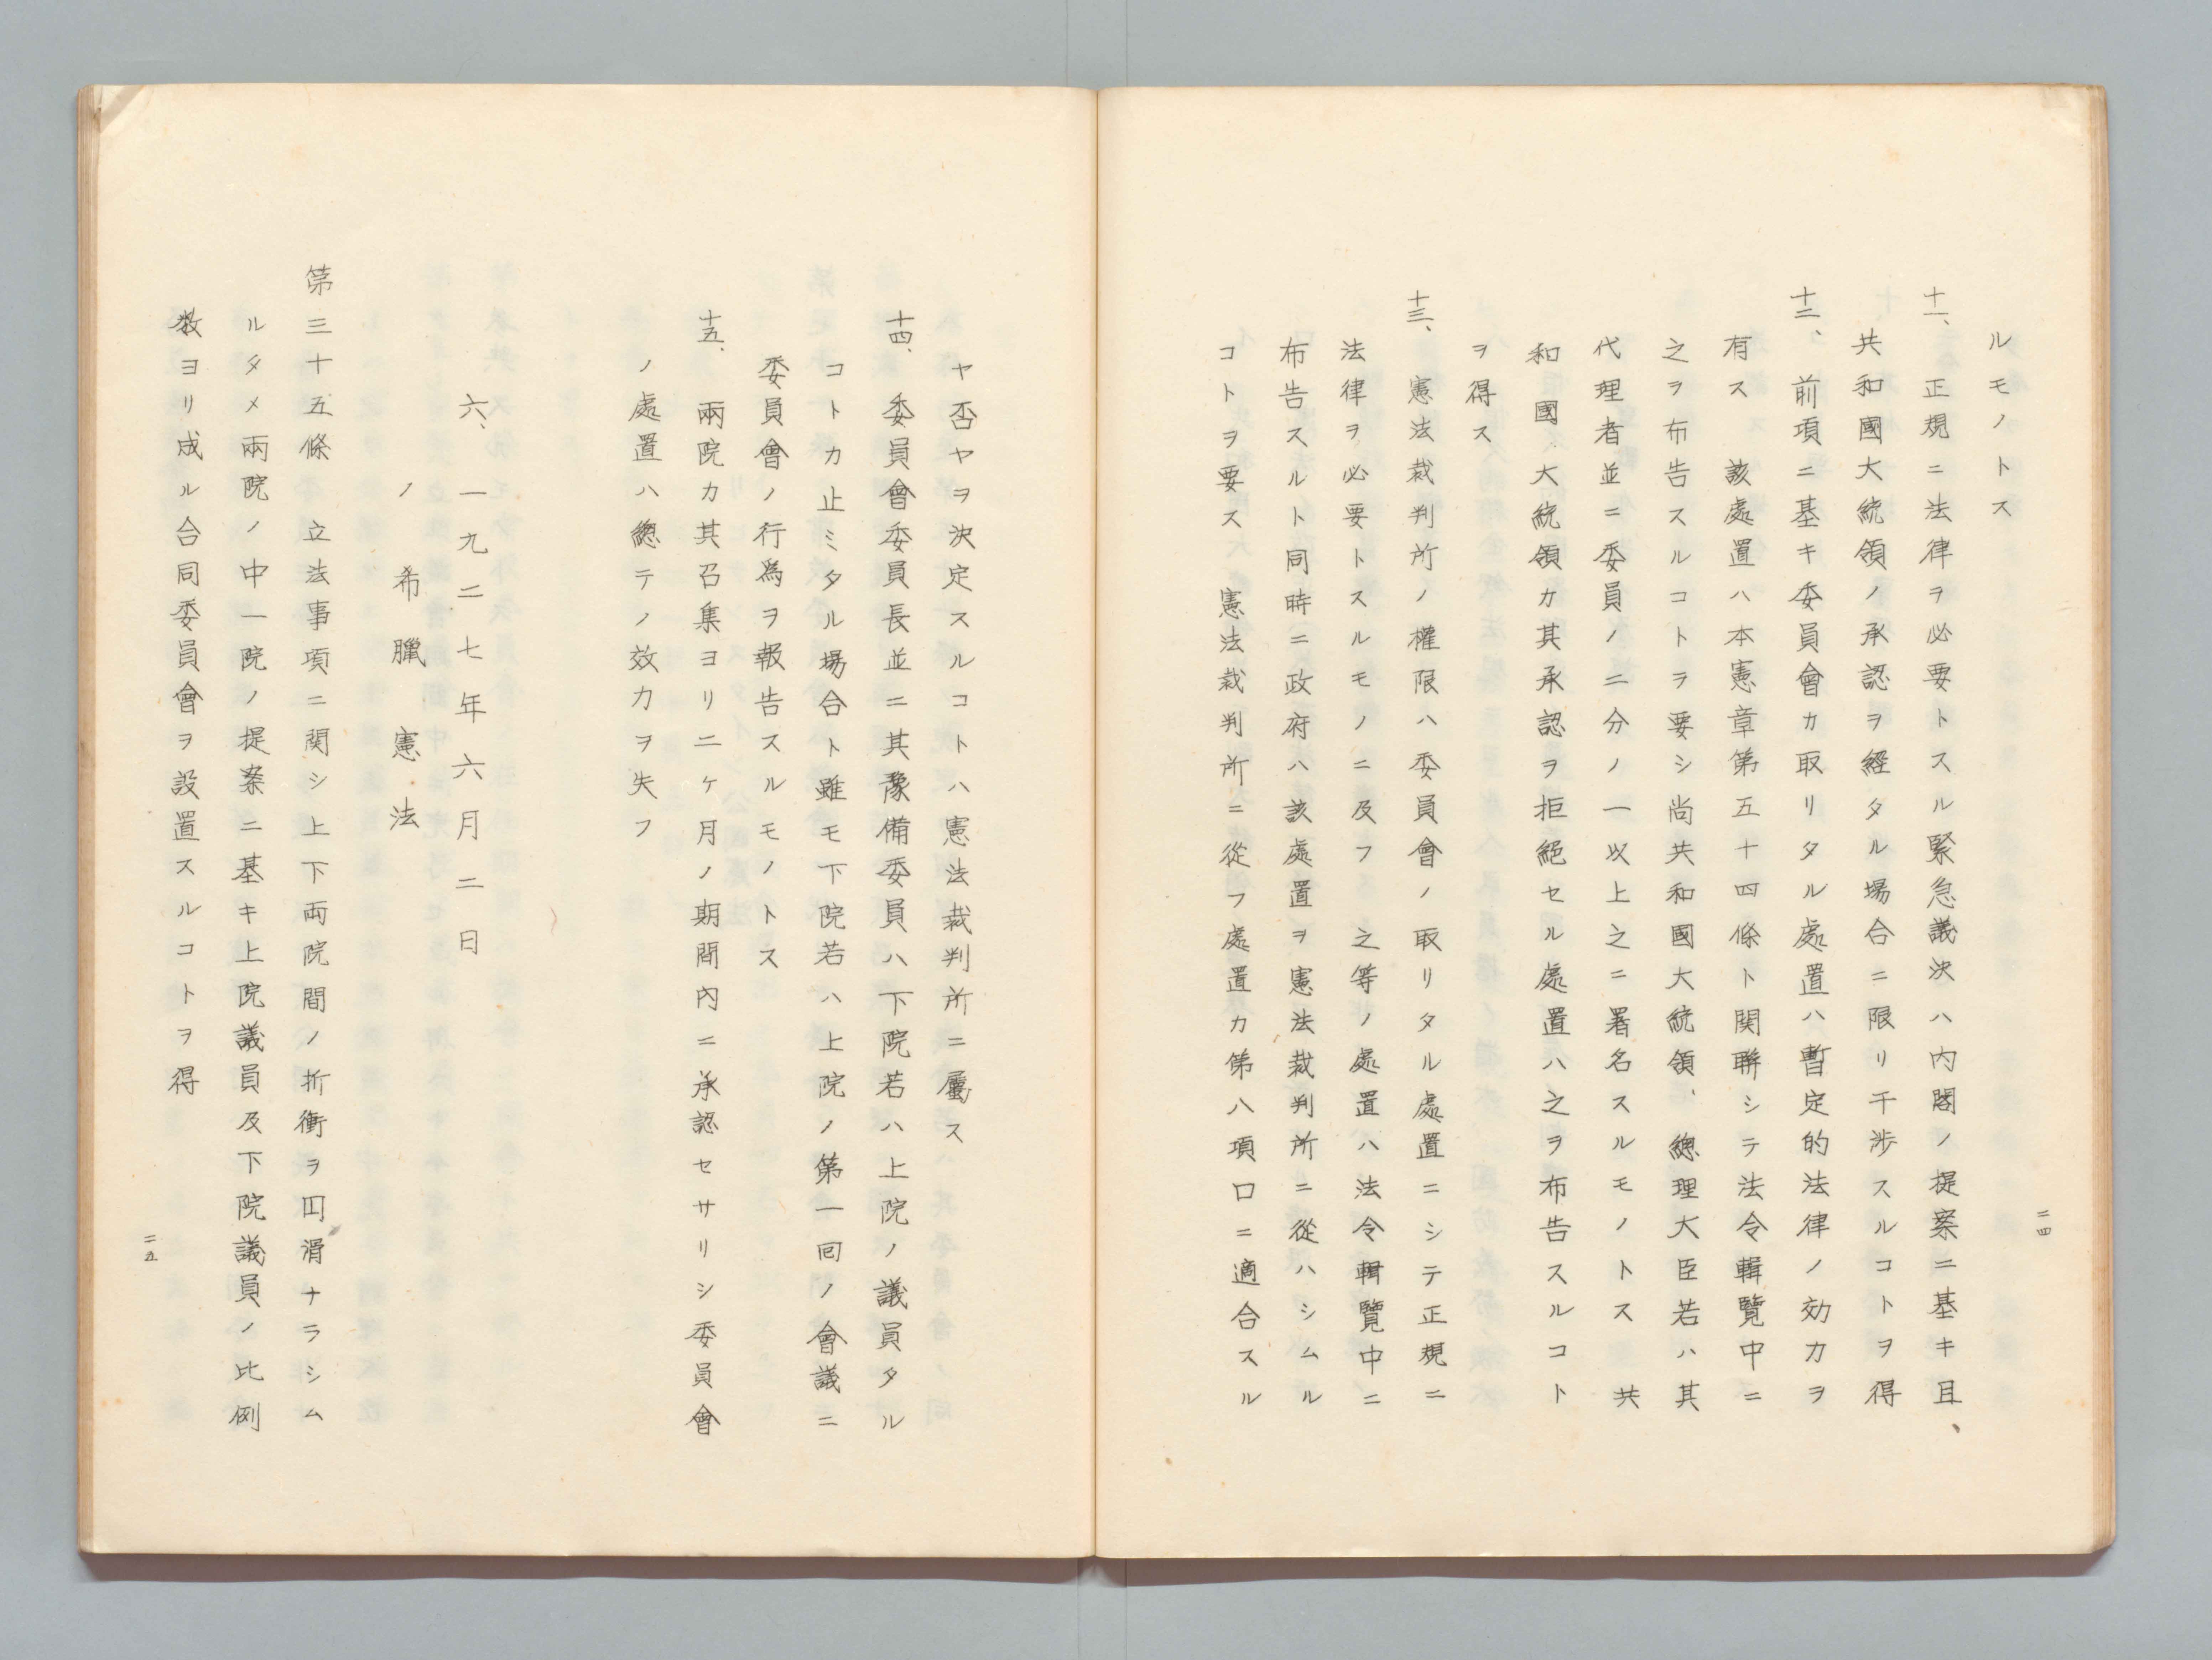 ルモノトス
十一、正規ニ法律ヲ必要トスル緊急議決ハ内閣ノ提案ニ基キ且、
共和國大統領ノ承認ヲ經タル場合ニ限リ干渉スルコトヲ得
十二、前項ニ基キ委員會カ取リタル處置ハ暫定的法律ノ効力ヲ
有ス 該處置ハ本憲章第五十四條ト関聯シテ法令輯覽中ニ
之ヲ布告スルコトヲ要シ尚共和國大統領、總理大臣若ハ其
代理者並ニ委員ノ二分ノ一以上之ニ署名スルモノトス 共
和國大統領カ其承認ヲ拒絕セル處置ハ之ヲ布告スルコト
ヲ得ス
十三、憲法裁判所ノ權限ハ委員會ノ取リタル處置ニシテ正規ニ
法律ヲ必要トスルモノニ及フ 之等ノ處置ハ法令輯覽中ニ
布告スルト同時ニ政府ハ該處置ヲ憲法裁判所ニ從ハシムル
コトヲ要ス 憲法裁判所ニ從フ處置カ第八項口ニ適合スル
二四
ヤ否ヤヲ決定スルコトハ憲法裁判所ニ屬ス
十四、委員會委員長並ニ其豫備委員ハ下院若ハ上院ノ議員タル
コトカ止ミタル場合ト雖モ下院若ハ上院ノ第一回ノ會議ニ
委員會ノ行爲ヲ報告スルモノトス
十五、兩院カ其召集ヨリ二ヶ月ノ期間内ニ承認セサリシ委員會
ノ處置ハ總テノ效力ヲ失フ
六、一九二七年六月二日
ノ希臘憲法
第三十五條 立法事項ニ関シ上下兩院間ノ折衝ヲ囘滑ナラシム
ルタメ兩院ノ中一院ノ提案ニ基キ上院議員及下院議員ノ比例
数ヨリ成ル合同委員會ヲ設置スルコトヲ得
二五